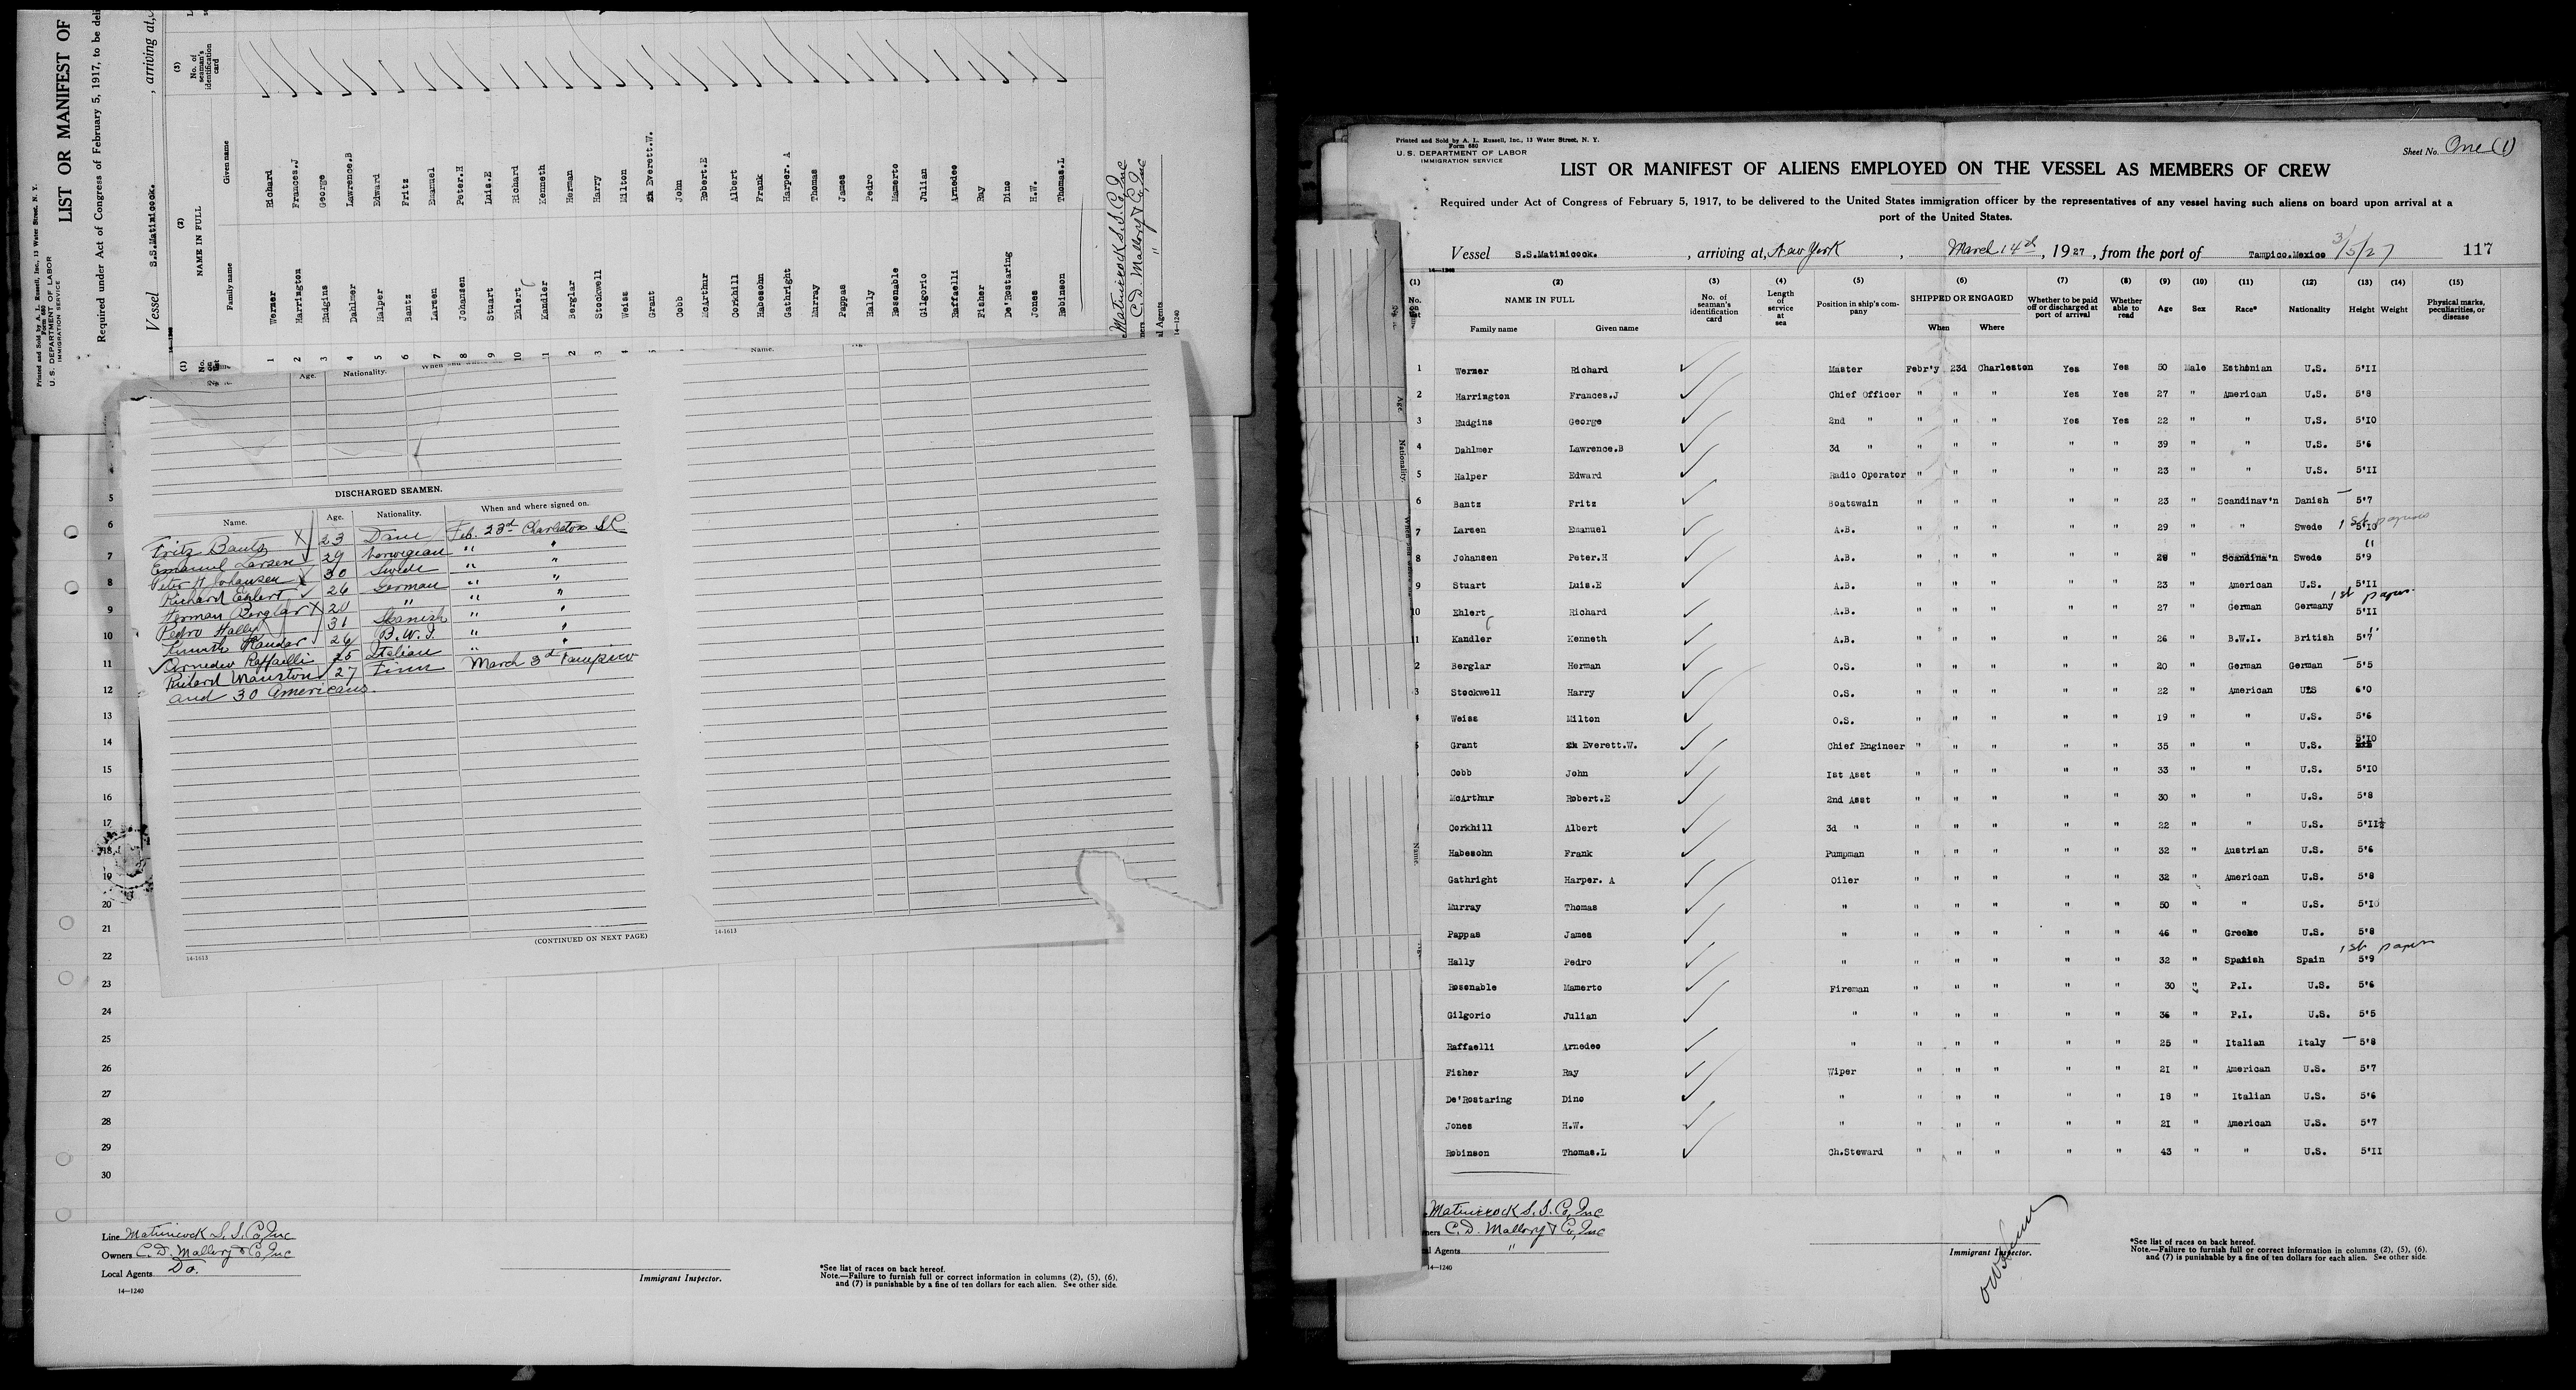 Printed and Sold by A. L. Russell, Inc., 13 Water Street, N. Y.
Form 680
U. S. DEPARTMENT OF LABOR
IMMIGRATION SERVICE
LIST OR MANIFEST OF
Required under Act of Congress of February 5, 1917, to be deli
Vessel S.S.Matinicock. , arriving at,
(1) (2) (3)
NAME IN FULL No. of seaman's identification card
Family name Given name
1 Werner Richard
2 Harrington Frances.J
3 Hudgins George
4 Dahlmer Lawrence.B
5 Halper Edward
6 Bantz Fritz
7 Larsen Emanuel
8 Johansen Peter.H
9 Stuart Luis.E
10 Ehlert Richard
1 Kandler Kenneth
2 Berglar Herman
3 Stockwell Harry
4 Weiss Milton
5 Grant Everett.W.
Cobb John
McArthur Robert.E
Corkhill Albert
Habesohn Frank
Gathright Harper. A
Murray Thomas
Pappas James
Hally Pedro
Rosenable Mamerto
Gilgorio Julian
Raffaelli Arnedeo
Fisher Ray
De'Rostaring Dino
Jones H.W.
Robinson Thomas.L
Matinicock S.S. Co, Inc
ners C. D. Mallory & Co, Inc
al Agents "
14-1240
Age. Nationality.
Name.
DISCHARGED SEAMEN.
Name. Age. Nationality. When and where signed on.
Fritz Bantz X 23 Dane Feb. 23d Charleston SC
Emanuel Larsen 29 Norwegian " "
Peter H Johansen 30 Swede " "
Richard Ehlert 26 German " "
Herman Berglar X 20 " " "
Pedro Hally 31 Spanish " "
Kenneth Kandler 26 B.W.I. " "
Arnedeo Raffaelli 25 Italian "
Richard Manston 27 Finn March 3d Tampico
and 30 Americans.
(CONTINUED ON NEXT PAGE)
14-1613
14-1613
5
6
7
8
9
10
11
12
13
14
15
16
17
18
19
20
21
22
23
24
25
26
27
28
29
30
Line Matinicock S. S. Co, Inc
Owners C. D. Mallory & Co, Inc
Local Agents Do.
14-1240
Immigrant Inspector.
*See list of races on back hereof.
Note.—Failure to furnish full or correct information in columns (2), (5), (6),
and (7) is punishable by a fine of ten dollars for each alien. See other side.
Printed and Sold by A. L. Russell, Inc., 13 Water Street, N. Y.
Form 680
U. S. DEPARTMENT OF LABOR
IMMIGRATION SERVICE
Sheet No. One (1)
LIST OR MANIFEST OF ALIENS EMPLOYED ON THE VESSEL AS MEMBERS OF CREW
Required under Act of Congress of February 5, 1917, to be delivered to the United States immigration officer by the representatives of any vessel having such aliens on board upon arrival at a
port of the United States.
Vessel S.S.Matinicock. , arriving at, New York , March 14th , 1927 , from the port of Tampico.Mexico 3/5/27 117
(1) (2) (3) (4) (5) (6) (7) (8) (9) (10) (11) (12) (13) (14) (15)
NAME IN FULL No. of seaman's identification card Length of service at sea Position in ship's company SHIPPED OR ENGAGED Whether to be paid off or discharged at port of arrival Whether able to read Age Sex Race* Nationality Height Weight Physical marks, peculiarities, or disease
Family name Given name When Where
1 Werner Richard Master Febr'y 23d Charleston Yes Yes 50 Male Esthonian U.S. 5'11
2 Harrington Frances.J Chief Officer " " " Yes Yes 27 " American U.S. 5'8
3 Hudgins George 2nd " " " " Yes Yes 22 " " U.S. 5'10
4 Dahlmer Lawrence.B 3d " " " " " " 39 " " U.S. 5'6
5 Halper Edward Radio Operator " " " " " 23 " " U.S. 5'11
6 Bantz Fritz Boatswain " " " " " 23 " Scandinav'n Danish — 5'7
7 Larsen Emanuel A.B. " " " " " 29 " " Swede 5'10 1st papers
8 Johansen Peter.H A.B. " " " " " 28 " Scandina'n Swede 5'9 "
9 Stuart Luis.E A.B. " " " " " 23 " American U.S. 5'11
10 Ehlert Richard A.B. " " " " " 27 " German Germany 5'11 1st papers.
11 Kandler Kenneth A.B. " " " " " 26 " B.W.I. British 5'7 "
2 Berglar Herman O.S. " " " " " 20 " German German — 5'5
3 Stockwell Harry O.S. " " " " " 22 " American US 6'0
Weiss Milton O.S. " " " " " 19 " " U.S. 5'6
5 Grant Everett.W. Chief Engineer " " " " " 35 " " U.S. 5'10
Cobb John Ist Asst " " " " " 33 " " U.S. 5'10
McArthur Robert.E 2nd Asst " " " " " 30 " " U.S. 5'8
Corkhill Albert 3d " " " " " " 22 " " U.S. 5'11½
Habesohn Frank Pumpman " " " " " 32 " Austrian U.S. 5'6
Gathright Harper. A Oiler " " " " " 32 " American U.S. 5'8
Murray Thomas " " " " " " 50 " " U.S. 5'10
Pappas James " " " " " " 46 " Greeke U.S. 5'8
Hally Pedro " " " " " " 32 " Spanish Spain 5'9 1st papers
Rosenable Mamerto Fireman " " " " " 30 " P.I. U.S. 5'6
Gilgorio Julian " " " " " " 36 " P.I. U.S. 5'5
Raffaelli Arnedeo " " " " " " 25 " Italian Italy — 5'8
Fisher Ray Wiper " " " " " 21 " American U.S. 5'7
De'Rostaring Dino " " " " " " 18 " Italian U.S. 5'6
Jones H.W. " " " " " " 21 " American U.S. 5'7
Robinson Thomas.L Ch.Steward " " " " " 43 " " U.S. 5'11
Matinicock S. S. Co, Inc
ners C. D. Mallory & Co, Inc
al Agents "
14-1240
Immigrant Inspector.
*See list of races on back hereof.
Note.—Failure to furnish full or correct information in columns (2), (5), (6),
and (7) is punishable by a fine of ten dollars for each alien. See other side.